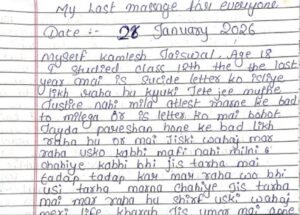 My Last massage for everyone
Date :- 28 January 2026
Myself Kamlesh Jaiswal. Age 18
I studied class 12th the the last
year omai is Sucide letter ko isliye
likh raha hu kyuki Jete jee mujhe
Justice nahi mila atlest marne ke bad
to milega Or is letter ko mai bohot
Jayda pareshan hone ke bad likh
raha hu or mai jiski wahaj mar
raha usko kabhi mafi nahi milni
chahiye kabhi bhi jis tarha mai
tadap tadap kar mar raha wo bhi
usi tarha marna chahiye Jis tarha
mai mar raha hu shirf uski wahaj
meri life kharab